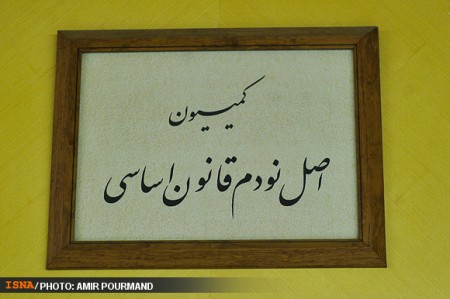 کمیسیون
اصل نودم قانون اساسی
ISNA/PHOTO: AMIR POURMAND